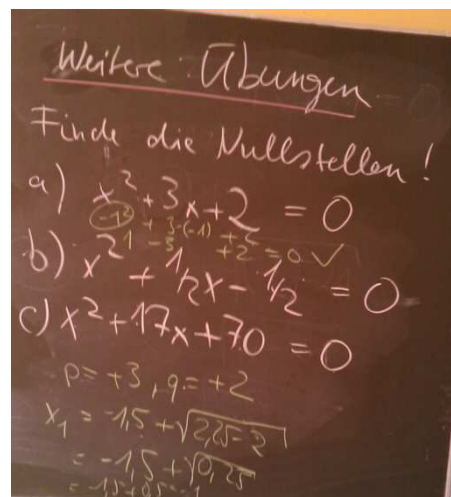 Weitere Übungen
Finde die Nullstellen!
a) x² + 3x + 2 = 0
-1² + 3·(-1) + 2
1 - 3 + 2 = 0 ✓
b) x² + 1/2x - 1/2 = 0
c) x² + 17x + 70 = 0
p = +3, q = +2
x₁ = -1,5 + √2,25-2
= -1,5 + √0,25
= -1,5 + 0,5 = -1